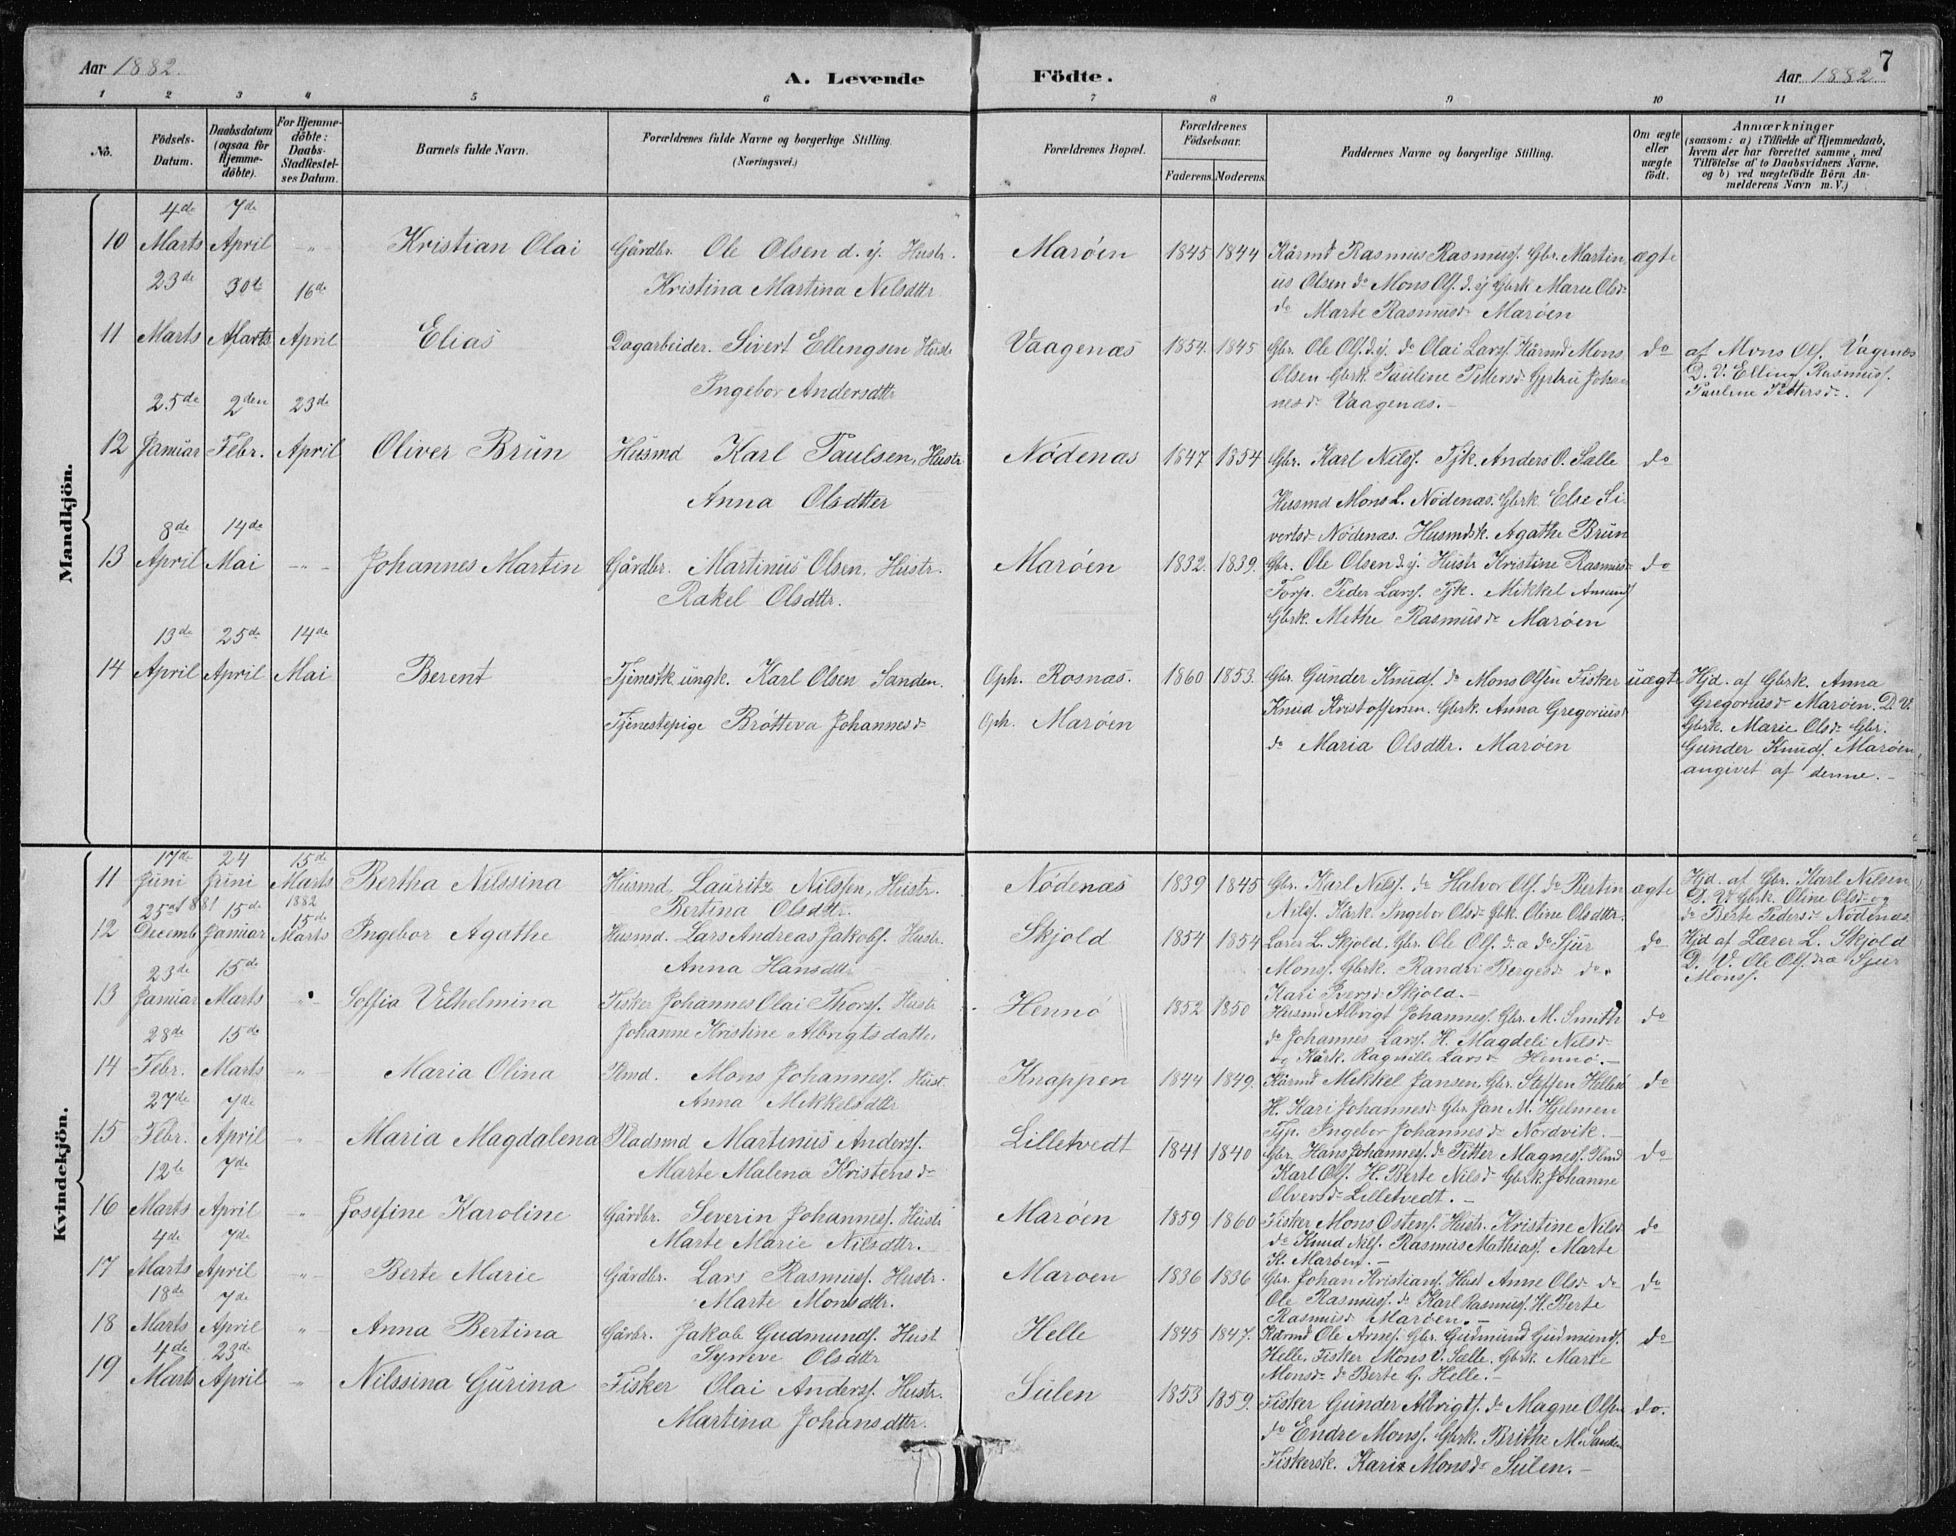 Aar 1882.
A. Levende
Födte.
Aar 1882
7
1 2 3 4 5 6 7 8 9 10 11
No.
Födsels-
Datum.
Daabsdatum
(ogsaa for
Hjemme-
döbte).
For Hjemme-
döbte:
Daabs-
Stadfæstel-
ses Datum.
Barnets fulde Navn.
Forældrenes fulde Navne og borgerlige Stilling.
(Næringsvei.)
Forældrenes Bopæl.
Forældrenes
Födselsaar.
Faderens. Moderens.
Faddernes Navne og borgerlige Stilling.
Om ægte
eller
uægte
födt.
Anmærkninger
(saasom: a) i Tilfælde af Hjemmedaab,
hvem der har forrettet samme, med
Tilföielse af to Daabsvidners Navne,
og b) ved uægtefödte Börn An-
melderens Navn m. V.)
Mandkjön.
4de 7de
10 Marts April -"- Kristian Olai Gårdbr. Ole Olsen d. y. Hustr. Marøen 1845 1844 Kårmd Rasmus Rasmuss. Gbr. Martin ægte
Kristina Martina Nilsdttr.
us Olsen do Mons Ols. d. y Gbrk Marie Olsd.
do Marte Rasmusd. Marøen
23de 30te 16de
11 Marts Marts April Elias Dagarbeider. Sivert Ellingsen Hustr Vaagenæs 1854. 1845 Gbr. Ole Ols. d. y. do Olai Larss. Kårmd Mons do af Mons Ols. Vagenes
Ingebor Andersdttr
Olsen Gbrk. Pauline Pettersd. Gjertru Johan
nesd. Vaagenæs.-
D. V. Elling Rasmuss.
Pauline Pettersd.
25de 2den 23de
12 Januar Febr. April Oliver Brun Husmd Karl Paulsen, Hustr Nødenas 1847 1854 Gbr. Karl Nilss. Tjk. Anders O. Sælle do
Anna Olsdtter
Husmd Mons L. Nødenas. Gbrk Else Si
vertsd Nødenas. Husmdk. Agathe Brun
8de 14de
13 April Mai -"- Johannes Martin Gårdbr. Martinus Olsen, Hustr. Marøen 1832. 1839. Gbr. Ole Olsen d. y. Hustr Kristine Rasmusd do
Rakel Olsdttr.
Torp. Peder Larss. Tjk. Mikkel Amunds
Gbrk. Methe Rasmusd. Marøen
13de 25de 14de
14 April April Mai Berent Tjenestk ungk. Karl Olsen Sanden. Oph. Rosnas. 1860 1853. Gbr. Gunder Knuds. do Mons Olsen Fisker uægte Hjd. af Gbrk. Anna
Tjenestepige Brøtteva Johannesd. Oph. Marøen
Knud Kristoffersen. Gbrk. Anna Gregoriusd
do Maria Olsdttr. Marøen
Gregoriusd. Marøen. D. V.
Gbrk. Marie Olsd. Gbr.
Gunder Knuds. Marøen
angivet af denne.-
Kvindekjön.
17de 24 15de
11 Juni Juni Marts Bertha Nilssina Husmd. Lauritz Nilssen, Hustr. Nødenæs 1839 1845 Gbr. Karl Nilss. do Halvor Ols. do Bertin ægte Hjd. af Gbr. Karl Nilsen
1881 1882
Bertina Olsdttr.
Nilss. Kårk. Ingebor Olsd. Gbk. Oline Olsdttr.
D. V. Gbrk. Oline Olsd. og
do Berte Pedersd. Nødenæs.
25de 15de 15de
12 Decemb Januar Marts Ingebor Agathe Husmd. Lars Andreas Jakobs. Hustr. Skjold 1854 1854 Lærer L. Skjold. Gbr. Ole Ols. d. æ do Sjur do Hjd af Lærer L. Skjold
Anna Hansdttr
Monss. Gbrk. Randvi Bergesd. do.
Kari Iversd. Skjold.-
D. V. Ole Ols. d. æ Sjur
Monss.
23de 15de
13 Januar Marts " Soffia Vilhelmina Fisker Johannes Olai Thorss. Hustr Hennø 1852 1850 Husmd Albrigt Johanness. Gbr. M. Smith do
Johanne Kristine Albrigtsdatter
do Johannes Larss. H. Magdeli Nilsd.
og Kårk. Ragnille Larsd. Hennø.-
28de 15de
14 Febr. Marts -"- Maria Olina Plmd. Mons Johanness. Hust. Knappen 1844 1849. Kårmd Mikkel Jansen, Gbr. Steffen Hellisø do
Anna Mikkelsdttr
H. Kari Johannesd. Gbr. Jan M. Hjelmen
Tjp. Ingebor Johannesd. Nordvik.-
27de 7de
15 Febr. April -"- Maria Magdalena Pladsmd Martinus Anderss. Lilletvedt 1841 1840 Gbr. Hans Johanness. do Petter Magness. Plmd do
Marte Malena Kristensd.
Karl Ols. H. Berte Nilsd. Gbrk. Johanne
Olversd. Lilletvedt.-
12te 7de
16 Marts April " Josefine Karoline Gårdbr. Severin Johanness. Hustr Marøen 1859 1860 Fisker Mons Ostens. Hustr. Kristine Nilsd do
Marte Marie Nilsdttr.
do Knud Nilss. Rasmus Mathiass. Marte
K. Marøen.-
4de 7de
17 Marts April -"- Berte Marie Gårdbr. Lars Rasmuss. Hustr. Marøen 1836 1836 Gbr. Johan Kristians. Hust Anne Olsd. do do
Marte Monsdttr.
Ole Rasmuss. do Karl Rasmuss. H. Berte
Rasmusd Marøen.-
18de 7de
18 Marts April -"- Anna Bertina Gårbr. Jakob Gudmunds. Hust Helle 1845 1847. Kårmd Ole Arness. Gbr. Gudmund Gudmunds. do
Synneve Olsdttr
Helle. Fisker Mons V. Sælle. Gbrk. Marte
Monsd. do Berte G. Helle.-
4de 23de
19 Marts April " Nilssina Gurina Fisker Olai Anderss. Hustr. Sulen 1853 1859. Fisker Gunder Albrigts. do Magne Olsen do.
Martina Johansdttr.
do Endre Monss. Gbrk. Brithe M. Sanden
Fiskersk. Kari Monsd. Sulen.-